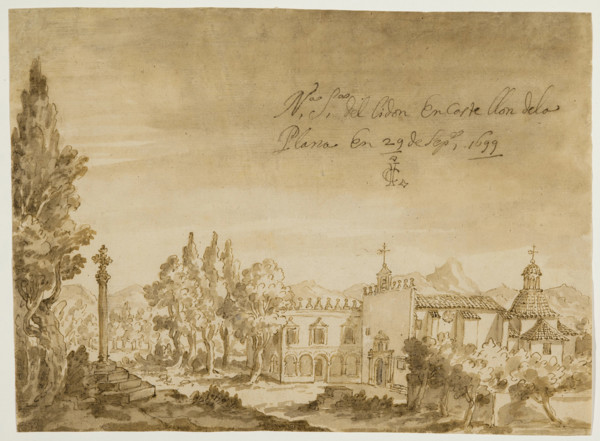 Nᵃ. Sᵃ. del Lidon en Caste llon dela
Plana en 29 de Sepᵉ, 1699